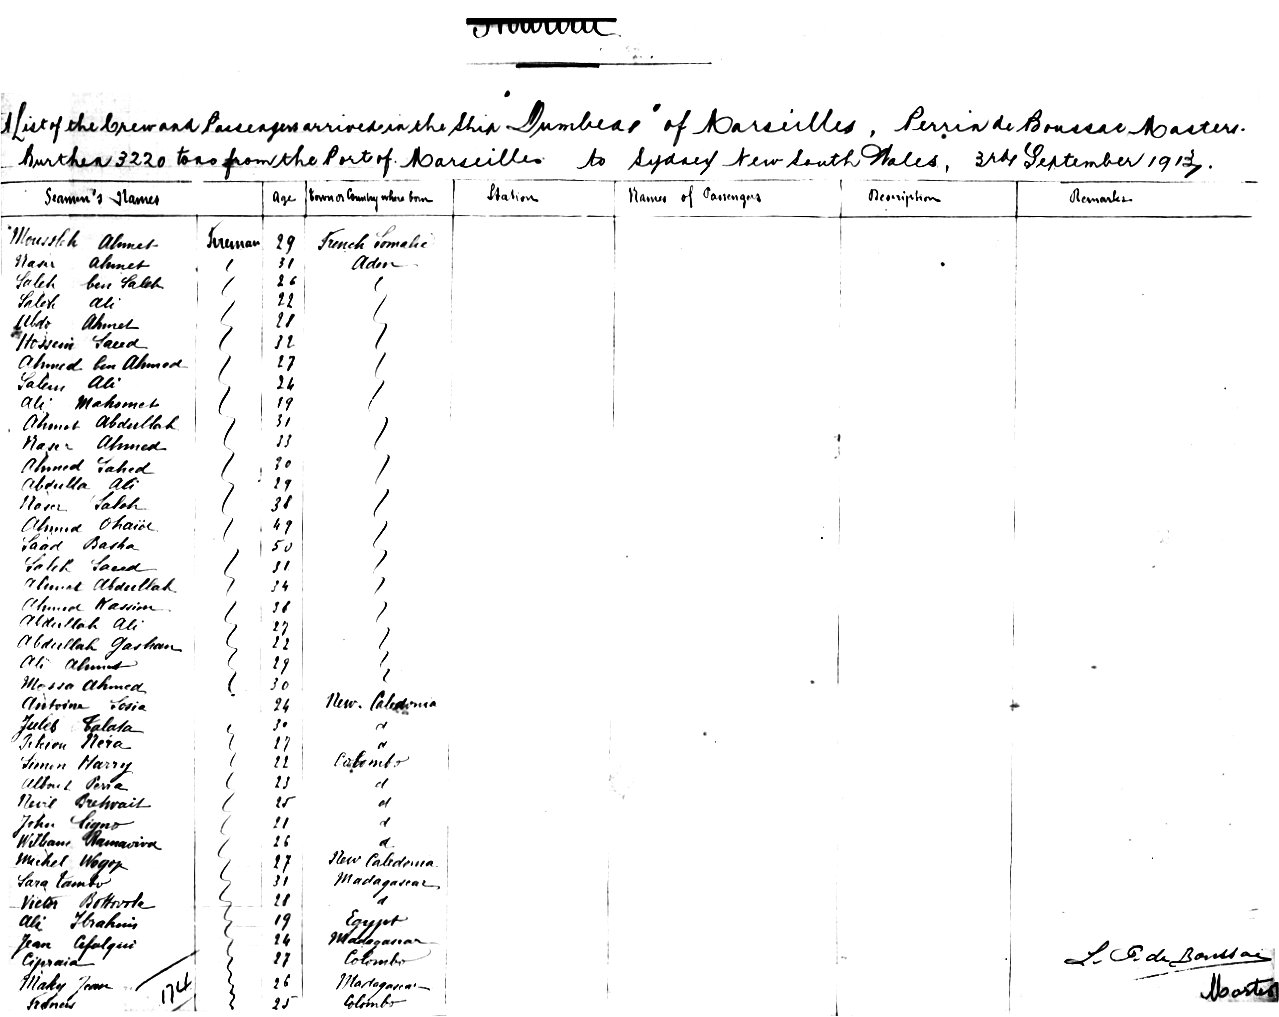 A List of the Crew and Passengers arrived in the Ship "Dumbea" of Marseilles, Perrin de Boussac Master.
Burthen 3220 tons from the Port of Marseilles to Sydney New South Wales, 3rd September 1913.
Seamen's Names Age Town or Country where born Station Names of Passengers Description Remarks
Ahmet Fireman 29 French Somalie
Naser Ahmet / 31 Aden
Saleh ben Saleh / 26 /
Saleh Ali / 22 /
Abdo Ahmet / 28 /
Hossein Saeed / 32 /
Ahmed ben Ahmed / 27 /
Salem Ali / 24 /
Ali Mahomet / 19 /
Ahmet Abdullah / 31 /
Naser Ahmed / 33 /
Ahmed Sahed / 30 /
Abdulla Ali / 29 /
Naser Saleh / 38 /
Ahmed Obaid / 49 /
Saad Basha 50
Saleh Saeed / 31 /
Ahmet Abdullah / 34 /
Ahmed Kassim / 36 /
Abdullah Ali / 27 /
Abdullah Gashan / 22 /
Ali Ahmet / 29 /
Mossa Ahmed / 30
Antoine Sosia 24 New Caledonia
Jules Talata / 30 d
Néra / 27 d
Simon Harry / 22 Colombo
Albert Peria / 23 d
Nevil / 25 d
John Signo / 21 d
William / 26 d
Michel Wogop / 27 New Caledonia
Sara Tambo / 31 Madagascar
Victor / 28 d
Ali Ibrahim / 19 Egypt
Jean / 24 Madagascar
Cipraia / 27 Colombo
Maky Jean / 26 Madagascar
Francis / 25 Colombo
174
L. P. de Boussac
Master